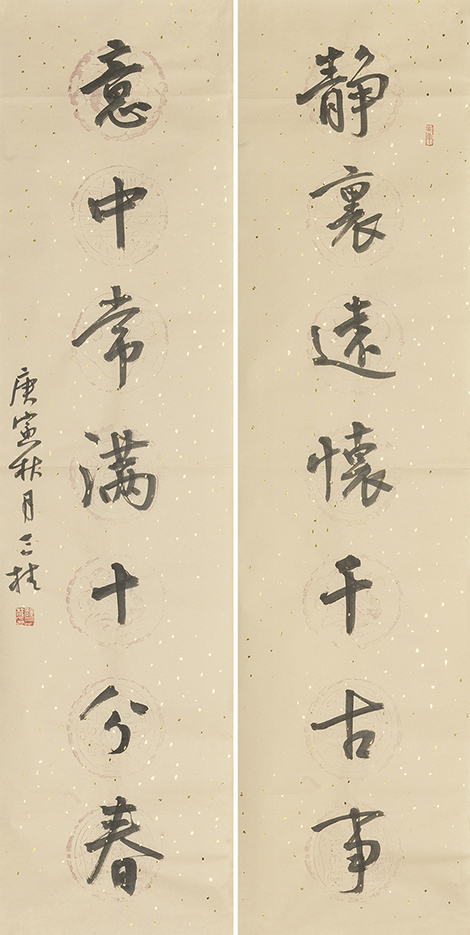 静裏遠懷千古事
意中常满十分春
庚寅秋月三桂